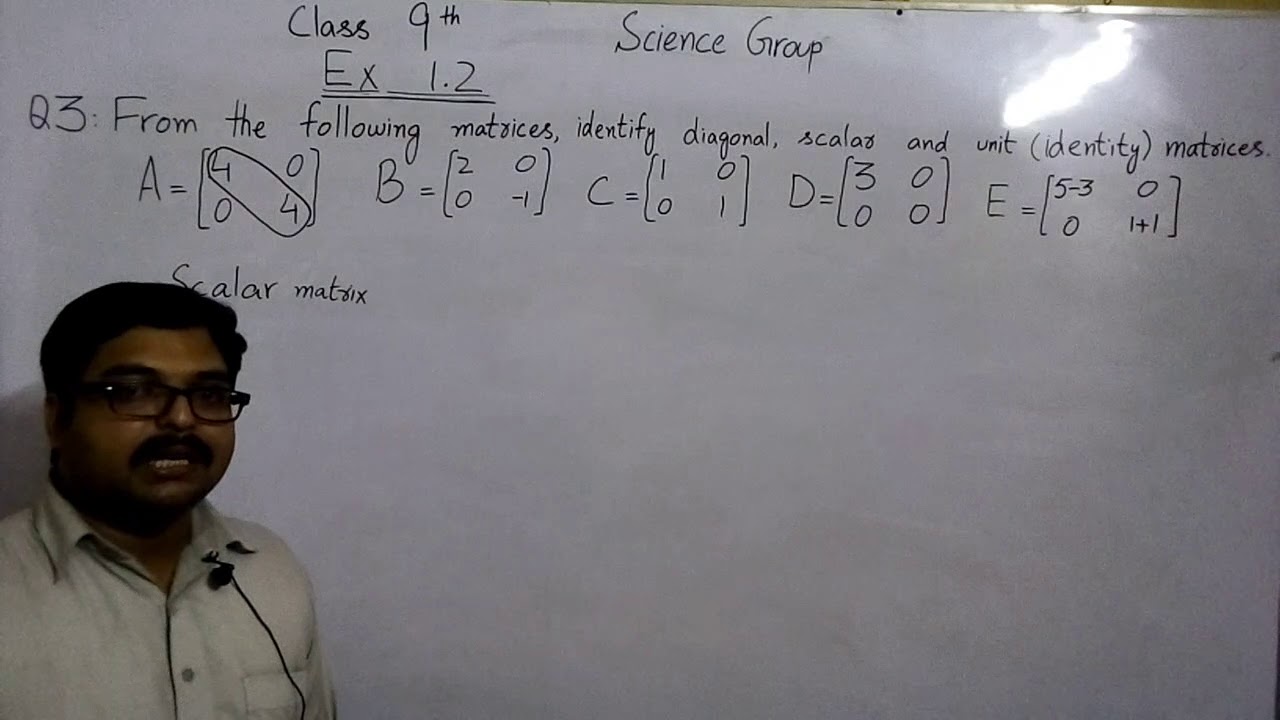 Class 9th Science Group
Ex 1.2
Q3: From the following matrices, identify diagonal, scalar and unit (identity) matrices.
A = [4 0 B = [2 0 C = [1 0 D = [3 0 E = [5-3 0
0 4] 0 -1] 0 1] 0 0] 0 1+1]
Scalar matrix